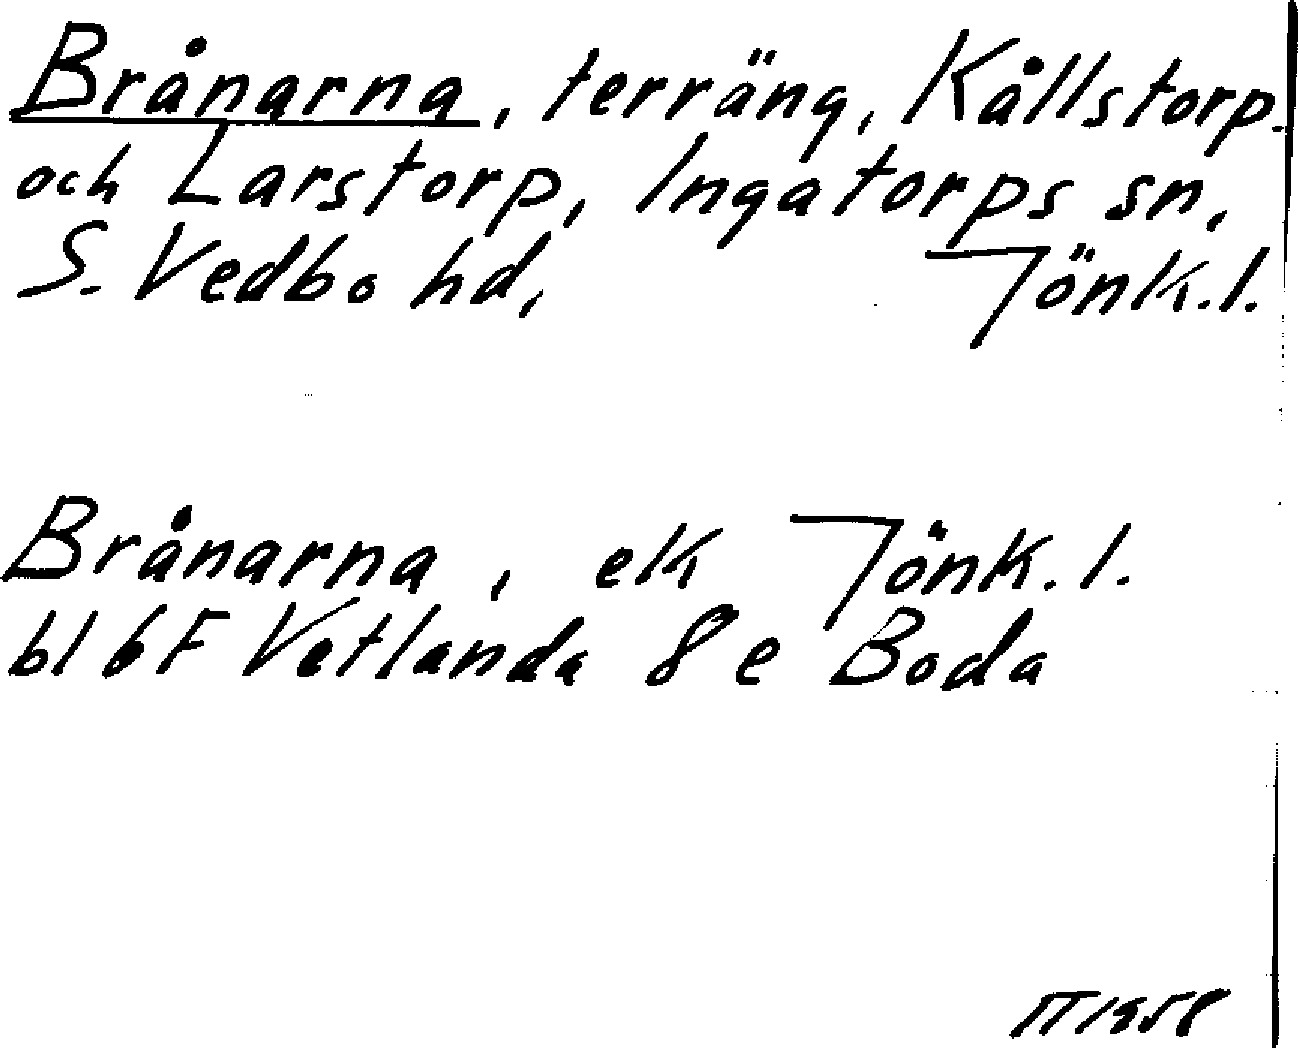 Brånarna, terräng, Kållstorp
och Larstorp, Ingatorps sn,
S. Vedbo hd, Jönk.l.
Brånarna, ek Jönk.l.
bl 6F Vetlanda 8 e Boda
1958